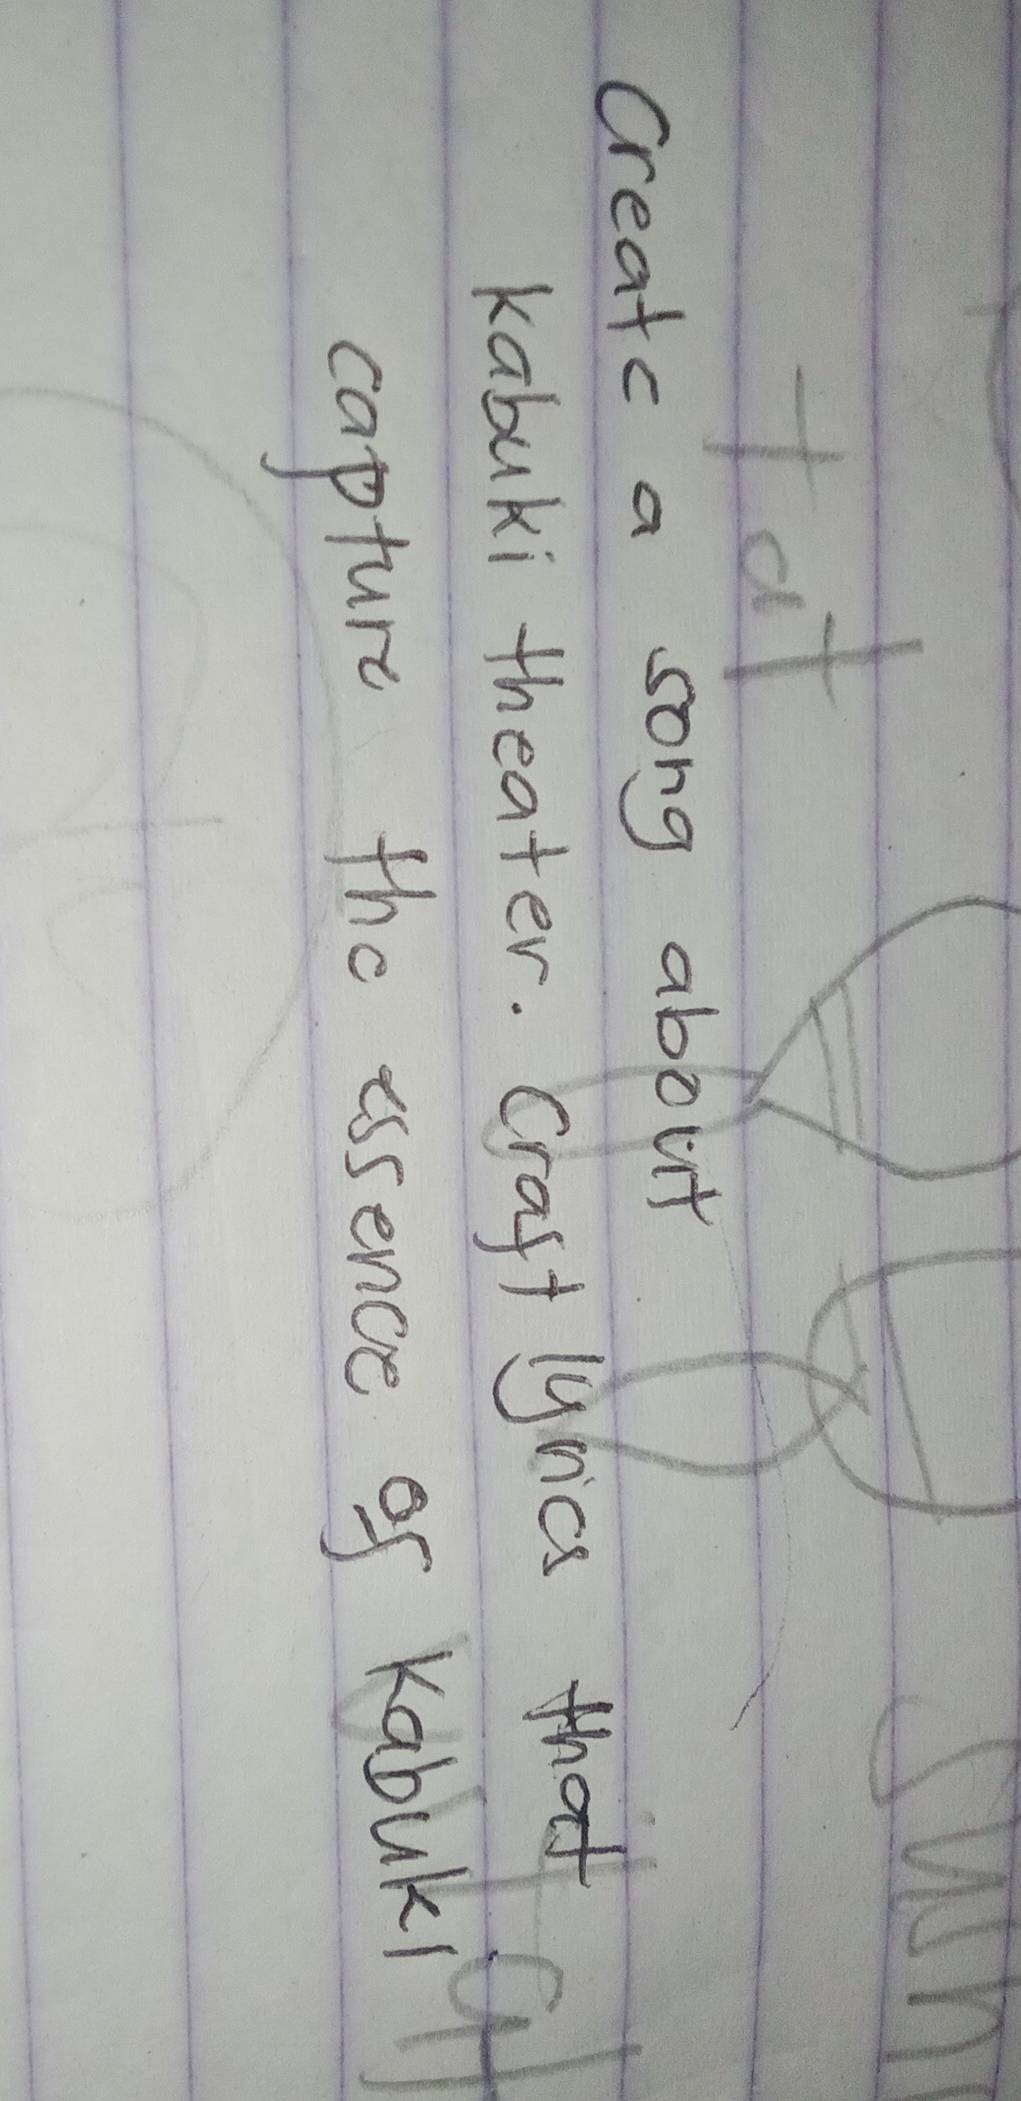 Create a song about
Kabuki theater. Craft lyrics that
capture the essence of Kabuki